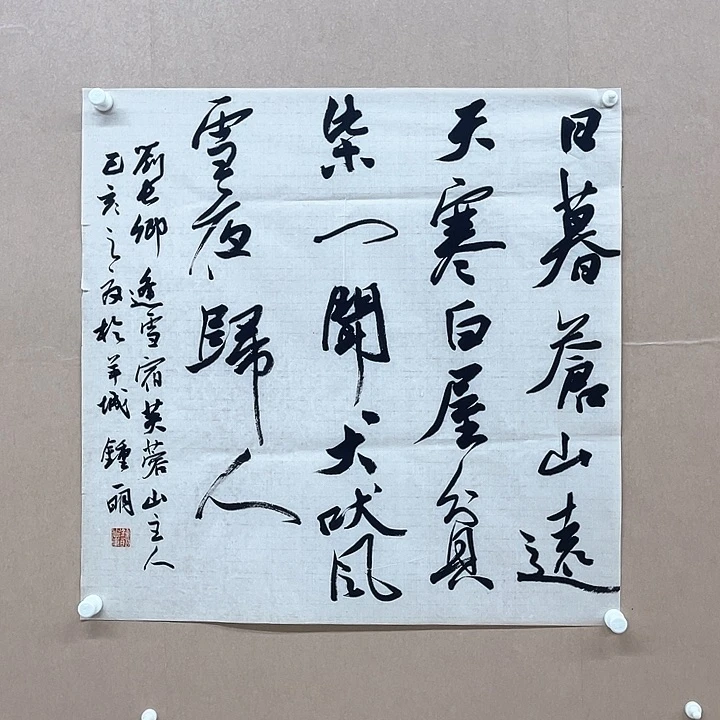 日暮蒼山遠
天寒白屋貧
柴門聞犬吠風
雪夜歸人
劉長卿 逢雪宿芙蓉山主人
己亥之夏於羊城 鍾